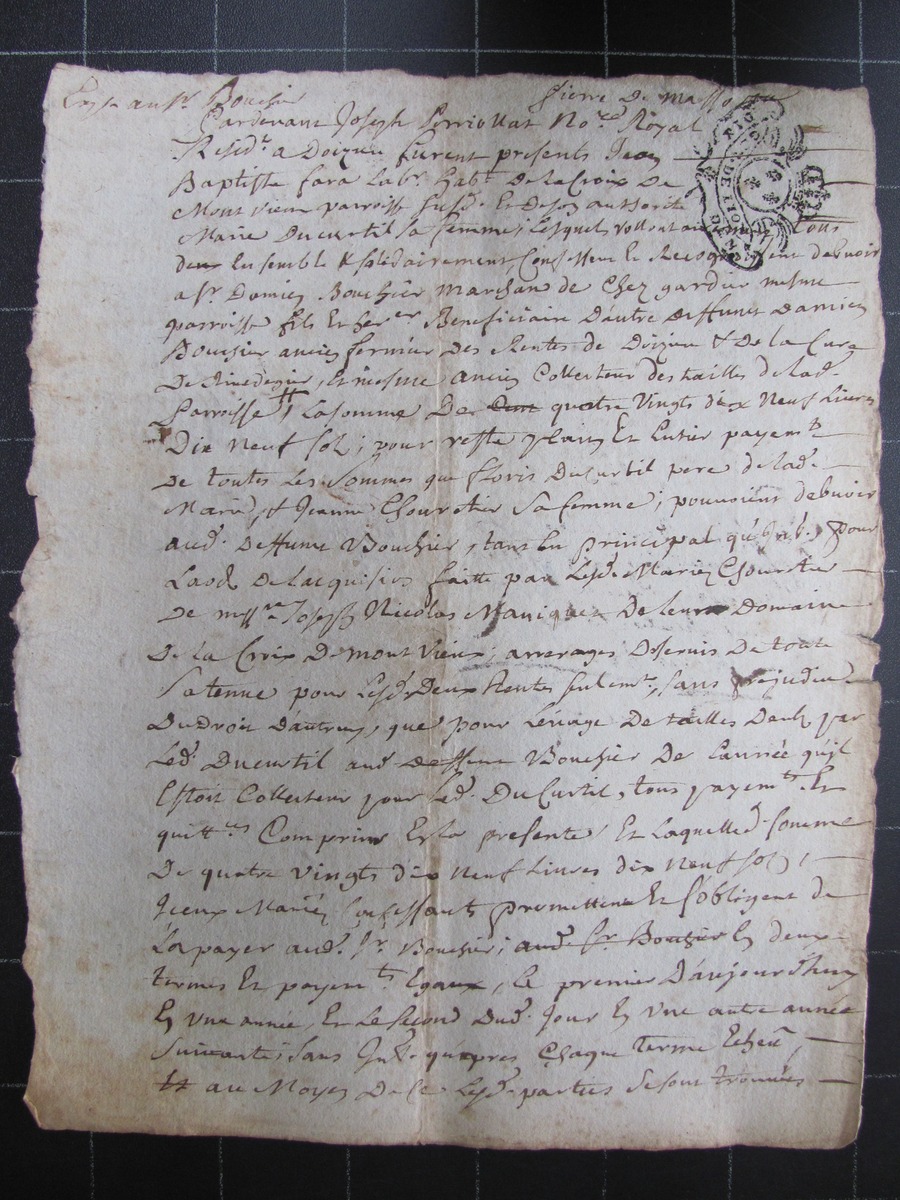 au Sr. Bouchier
Pierre De
Pardevant Joseph Perriollat No.re Royal
Resid.t a Doizieu furent presents Jean
Baptiste fara Lab.r hab.t De la Croix De
Mont vieux parroisse susd. Et De son authorité
Marie Ducurtil sa femme, Lesquels tous
deux Ensemble & solidairement, Confessent Et debvoir
a Sr. Damien Bouchier marchan de Chez gardur mesme
parroisse fils Et her.er Beneficiaire D'autre Deffunct Damien
Bouchier ancien fermier Des Rentes de Doizieu & De la Cura
De Et mesme ancien Collecteur des tailles de lad.
Parroisse, La somme De Cent quatre vingts dix Neuf Livres
Dix Neuf sols; pour reste Et Entier payem.t
De toutes Les sommes que floris Ducurtil pere de lad.
Marie, & Jeanne Chourotier Sa femme; pouvoient debvoir
aud. Deffunct Bouchier, tant En principal pour
Laod De lacquision faitte par Lesd. Mariez
De mess.re Joseph Nicolas De leur Domaine
De la Croix De mont vieux; arrerages De servis De toute
Sa tenue pour Lesd. Deux Rentes seulem.t, sans prejudice
Du Droit D'autruy, que pour Levage De tailles Deub par
Led. Ducurtil aud. Deffunct Bouchier De Lannée quil
Estoit Collecteur pour Led. Du Curtil, tous payem.ts Et
quitt.es Comprins Es la presente Et Laquelle d. somme
De quatre vingts dix Neuf Livres dix Neuf sols,
Iceux Mariez Confessants promettent Et s'obligent de
La payer aud. Sr. Bouchier; aud. Sr. Bouchier En deux
termes Et payem.ts Egaux, Le premier D'aujourdhuy
En une année, Et Le second Dud. Jour En une autre année
Suivante; sans Int. qu'apres Chaque terme Echeu
Et au Moyen De Ce Lesd. parties se sont trouvées